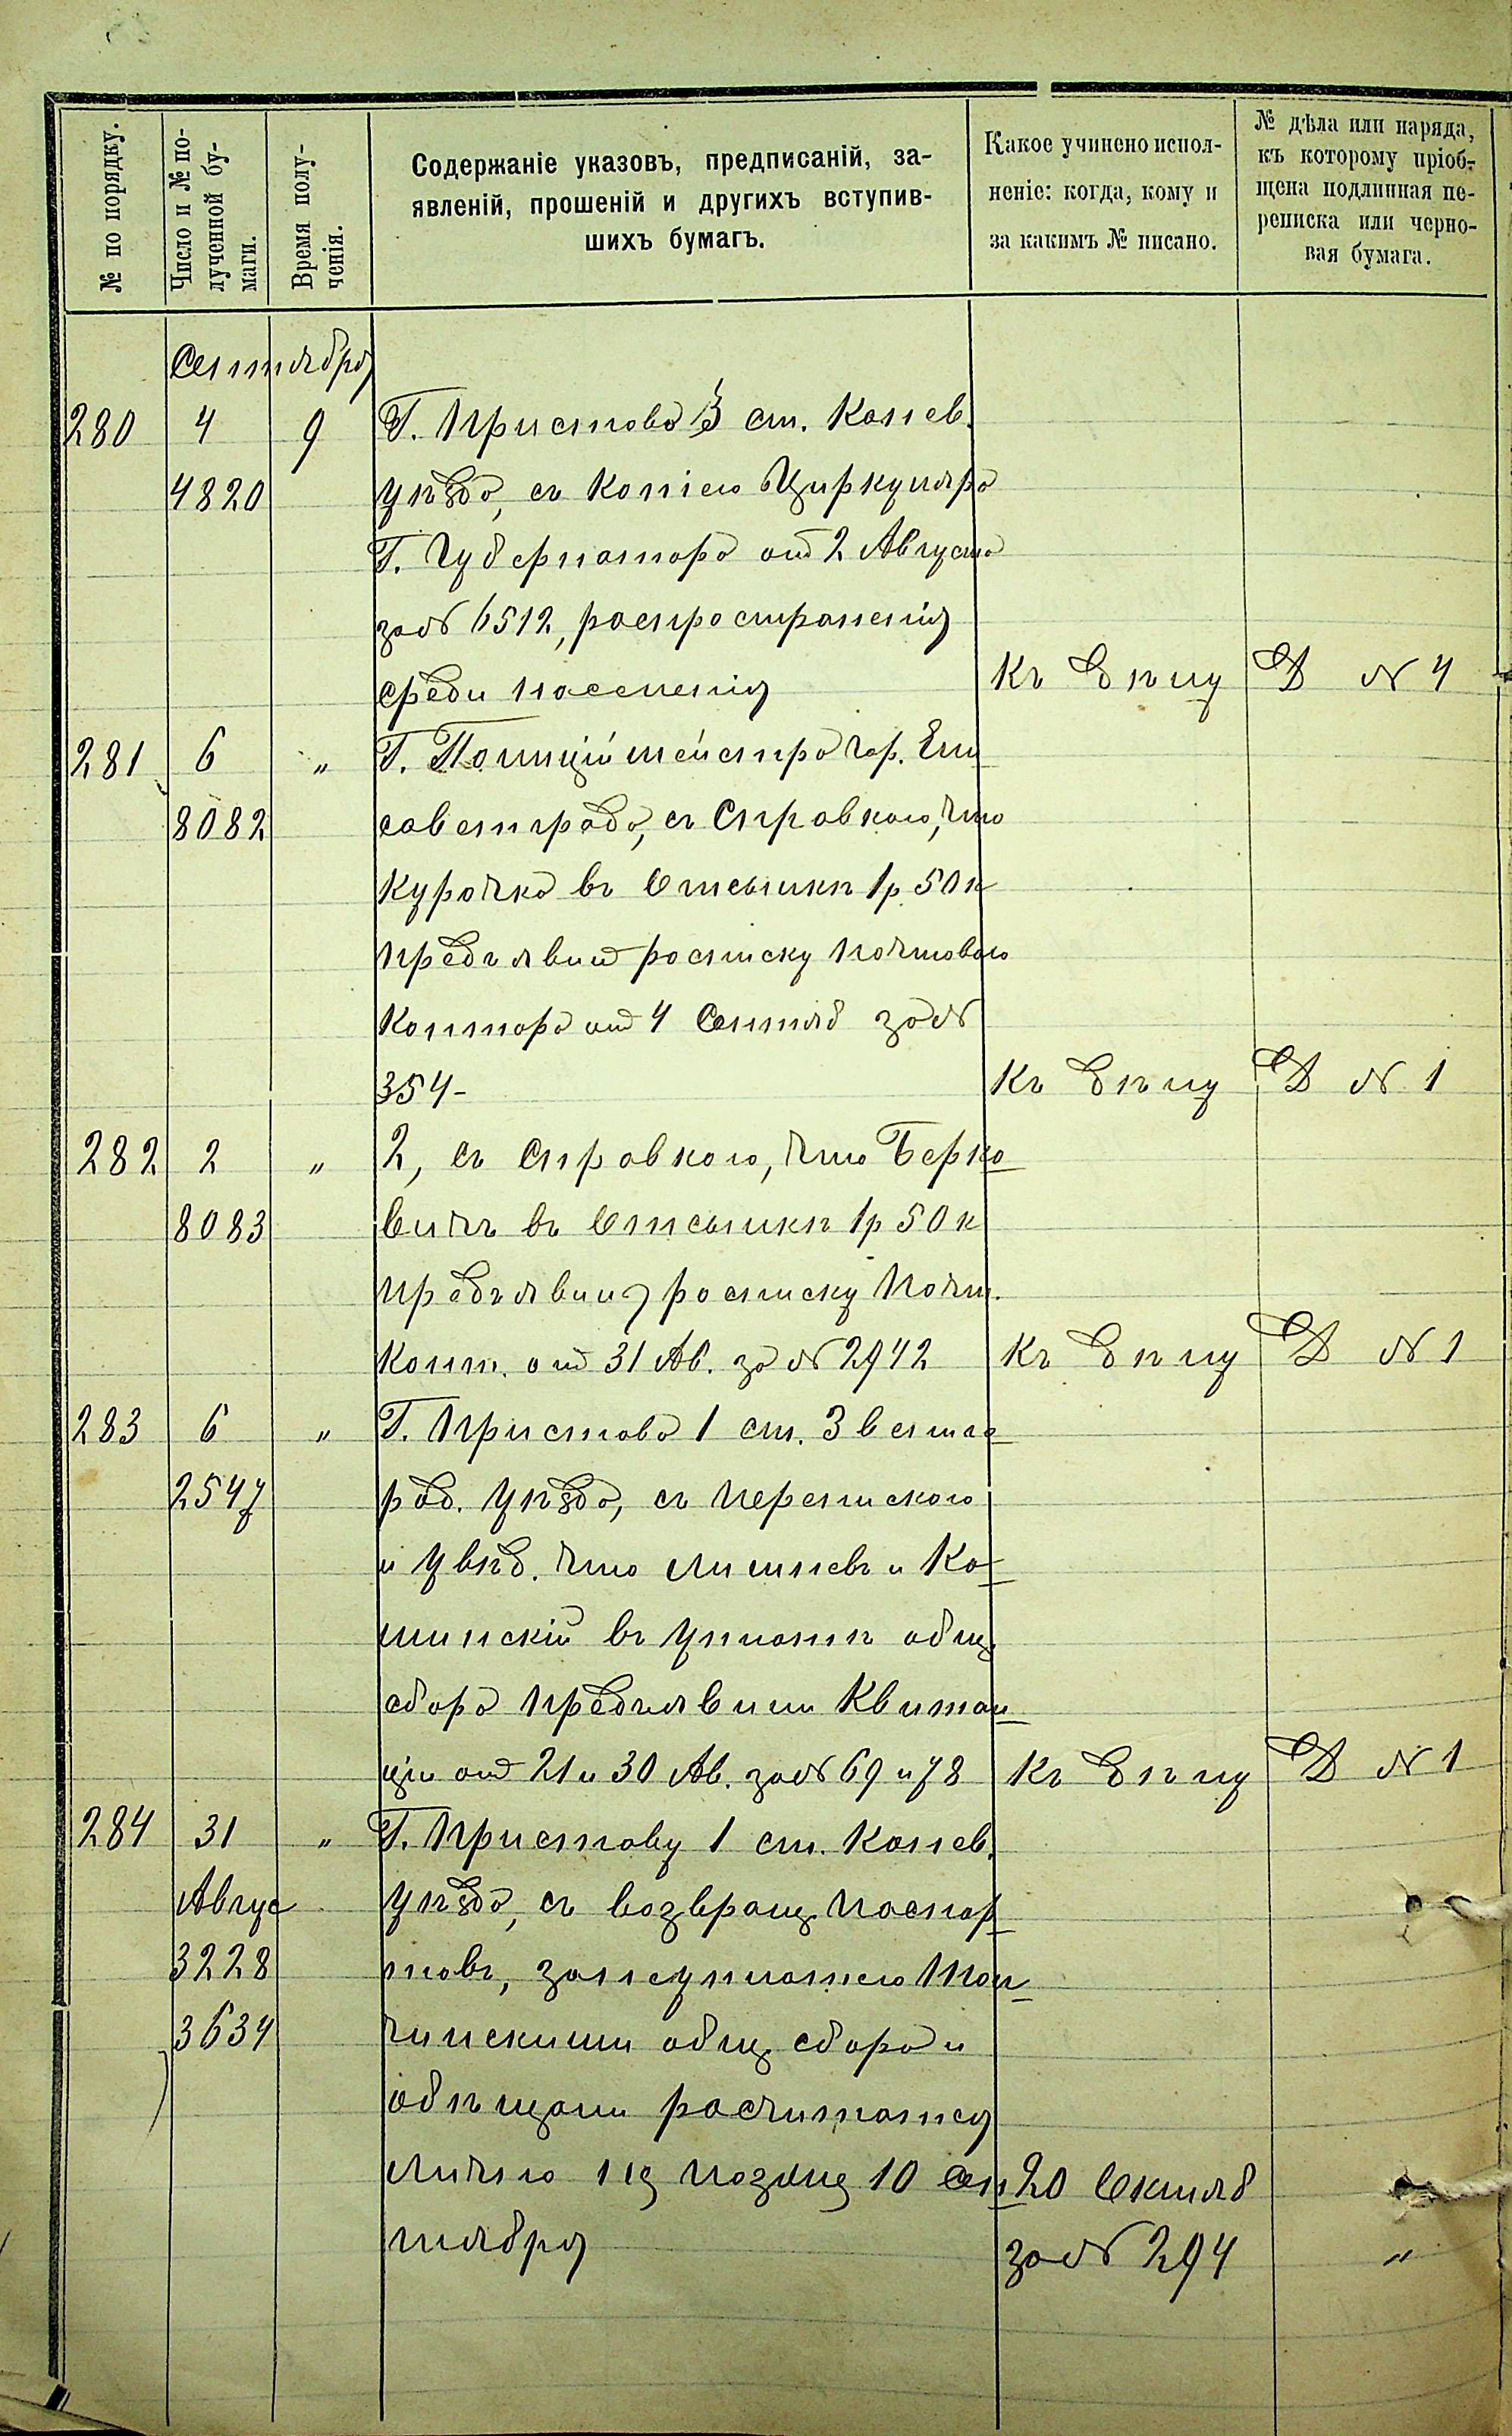 № по порядку.
Число и № по-
лученной бу-
маги.
Время полу-
ченія.
Содержаніе указовъ, предписаній, за-
явленій, прошеній и другихъ вступив-
шихъ бумагъ.
Какое учинено испол-
неніе: когда, кому и
за какимъ № писано.
№ дѣла или наряда,
къ которому пріоб-
щена подлинная пе-
реписка или черно-
вая бумага.
Сентября
280 4 9 Г. Пристава 3 ст. Канев.
4820 уѣзда, съ копіею Циркуляра
Г. Губернатора от 2 Августа
за № 6512, распространенія
среди населенія къ дѣлу Д № 4
281 6 " Г. Полиціймейстра гор. Ели
8082 саветграда, съ справкою, что
Курочка въ отсылкѣ 1р 50к
предъявил росписку почтовою
Контора от 4 Сентяб за №
354- къ дѣлу Д № 1
282 2 " 2, съ справкою, что Берко
8083 вичъ въ отсылкѣ 1р 50к
предъявилъ росписку Почт.
Конт. от 31 Ав. за № 2942 къ дѣлу Д № 1
283 6 " Г. Пристава 1 ст. Звениго
2547 род. уѣзда, съ перепискою
и увѣд. что и Ко
шинскій въ уплатѣ общ.
сбора предъявили Квитан
ціи от 21 и 30 Ав. за № 69 и 78 къ дѣлу Д № 1
284 31 " Г. Приставу 1 ст. Канев.
Авгус уѣзда, съ возвращ. паспор
3228 товъ,
3634 общ. сбора и
обѣщали
лично не позднѣ 10 Сен 20 Октяб
тября за № 294 "